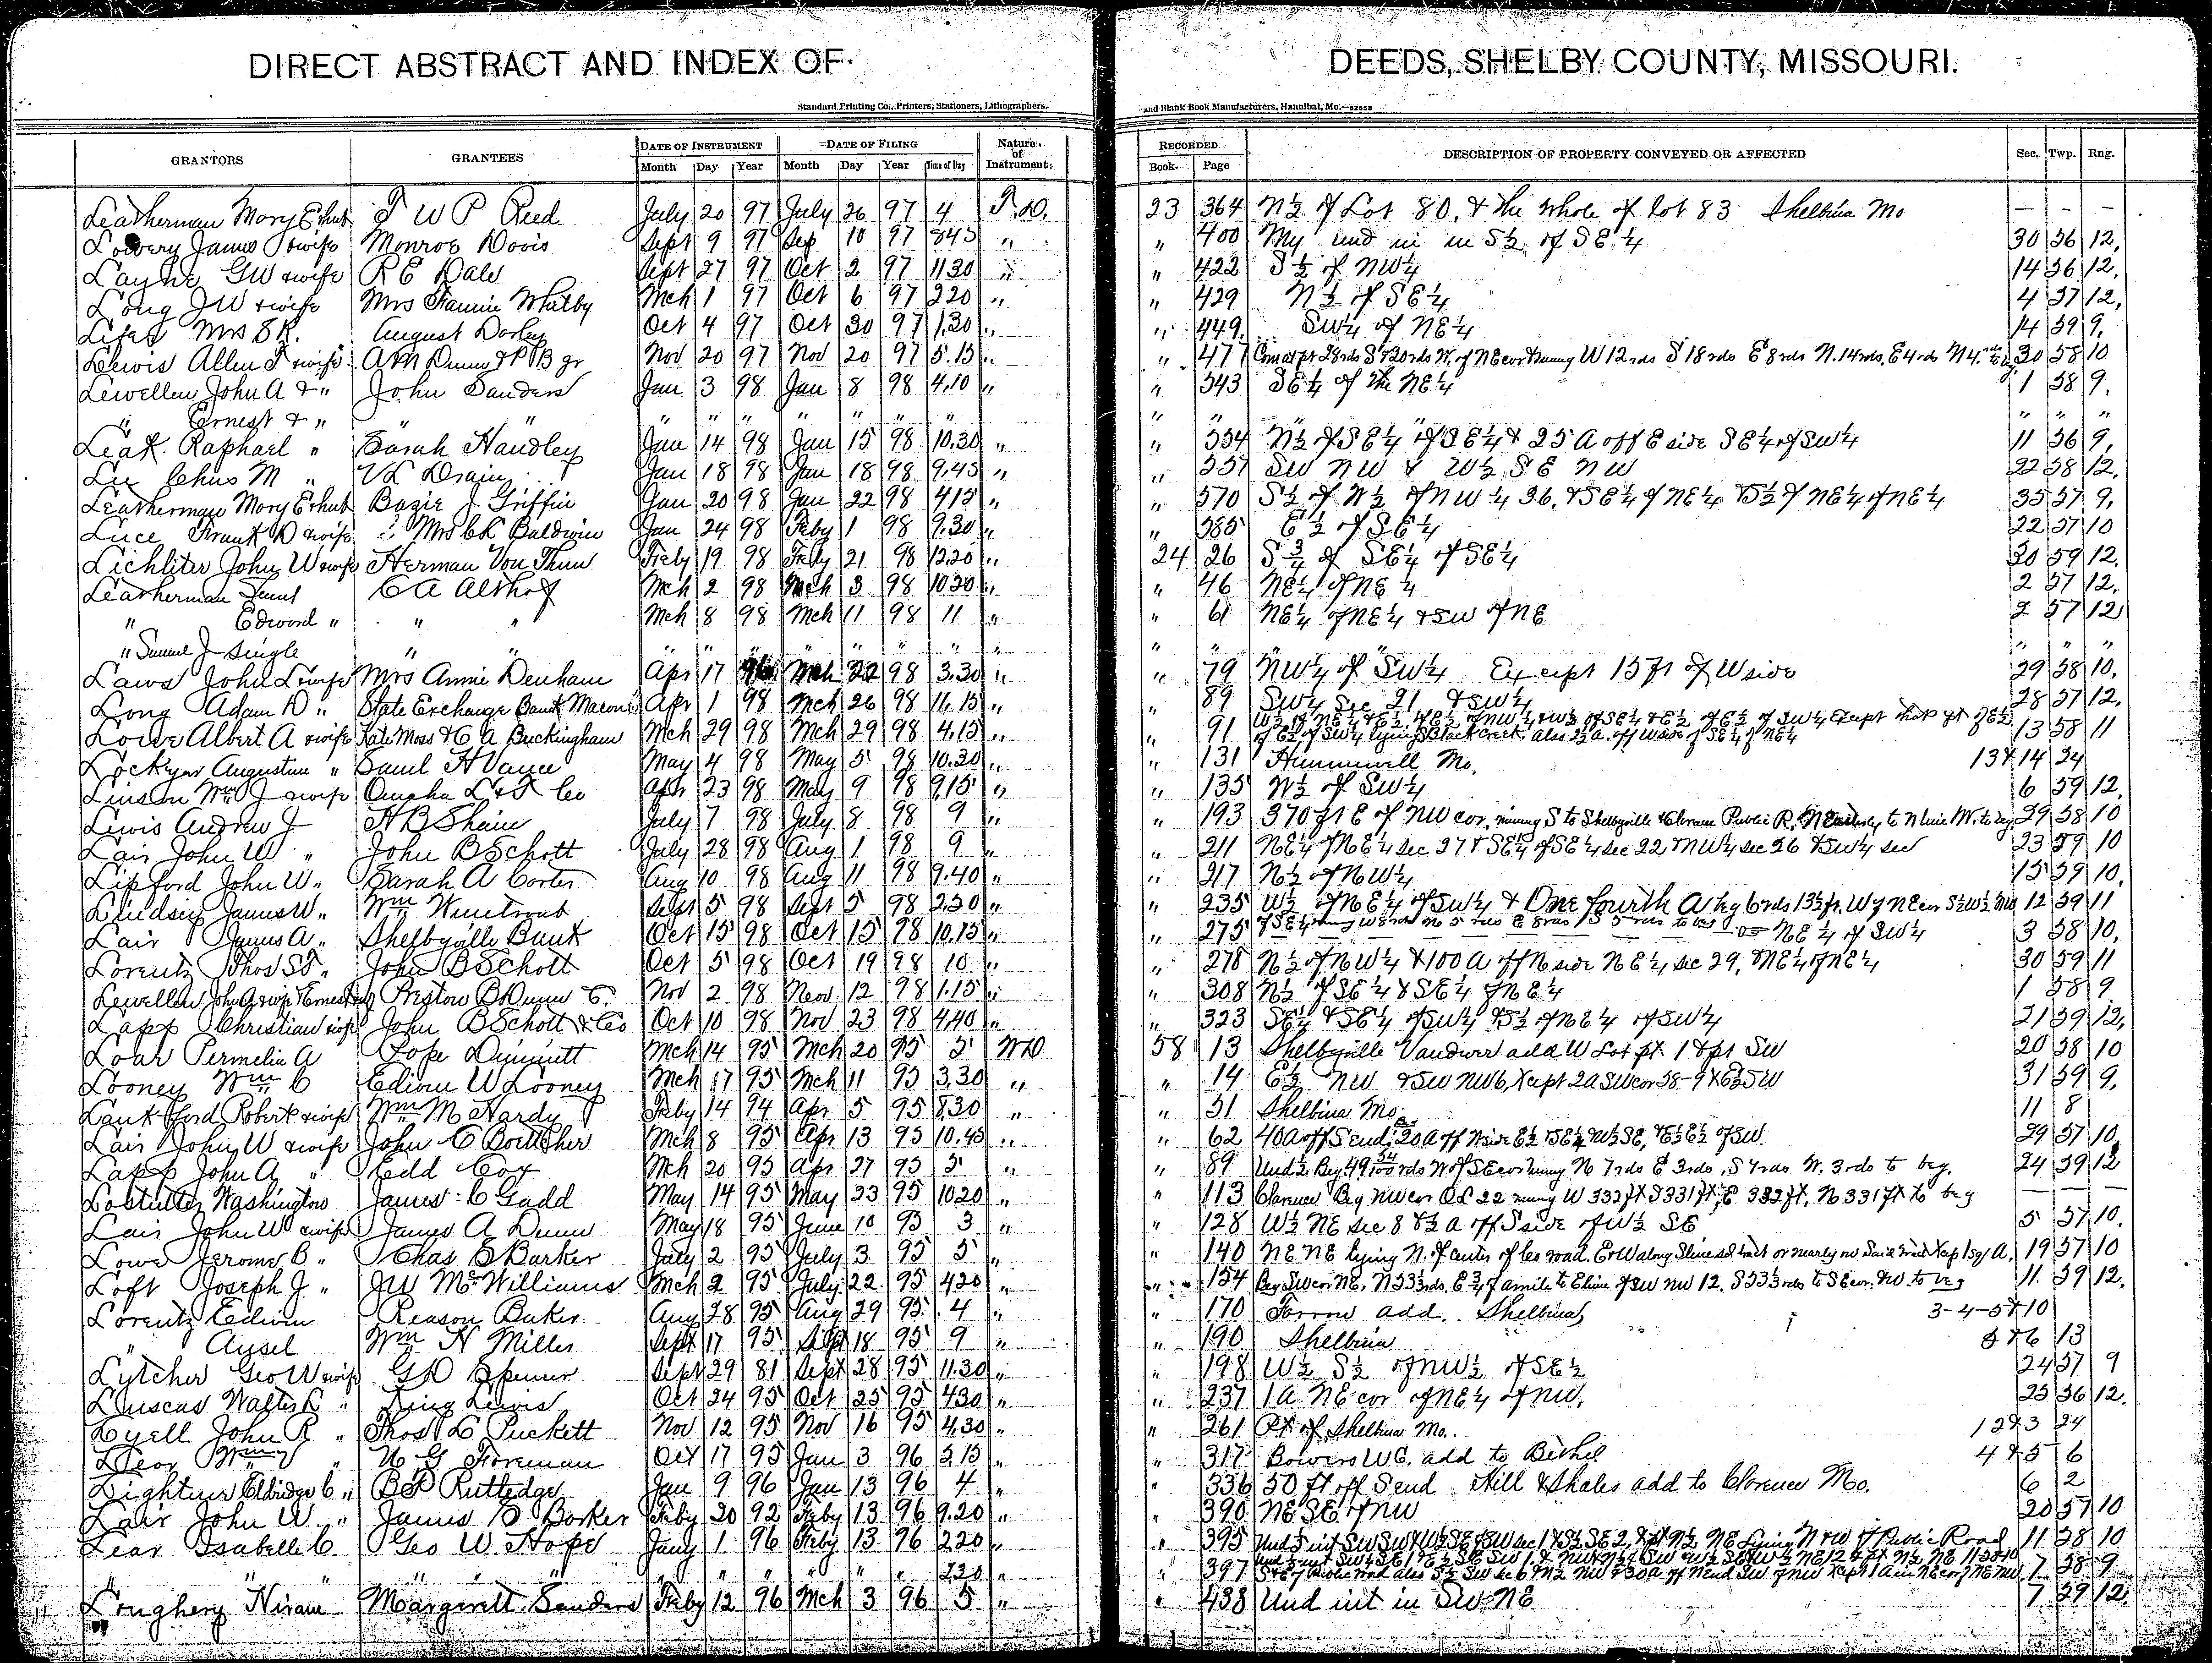 DIRECT ABSTRACT AND INDEX OF DEEDS, SHELBY COUNTY, MISSOURI.
Standard Printing Co., Printers, Stationers, Lithographers, and Blank Book Manufacturers, Hannibal, Mo.—62658
GRANTORS GRANTEES DATE OF INSTRUMENT DATE OF FILING Nature of Instrument RECORDED DESCRIPTION OF PROPERTY CONVEYED OR AFFECTED Sec. Twp. Rng.
Month Day Year Month Day Year Time of Day Book Page
Leatherman Mary E & hub T W P Reed July 20 97 July 26 97 4 23 364 N½ of Lot 80, & the whole of lot 83 Shelbina Mo — — —
Lowery James & wife Monroe Davis Sept 9 97 Sep 10 97 845 " " 400 My und in in S½ of SE¼ 30 56 12
Layne GW & wife R E Dale Sept 27 97 Oct 2 97 1130 " " 422 S½ of NW¼ 14 56 12
Long J W & wife Mrs Fannie Whitby Mch 1 97 Oct 6 97 220 " " 429 N½ of SE¼ 4 57 12
Mrs S R. August Oct 4 97 Oct 30 97 1.30 " " 449 SW¼ of NE¼ 14 59 9
Lewis Allen T & wife A M Dunn & P B Jr Nov 20 97 Nov 20 97 5.15 " " 477 Com at pt 28rds S & 20rds W. of NE cor runing W 12 rds S 18 rds E 8 rds N. 14 rds, E 4 rds N 4 30 58 10
Lewellen John A & " John Sanders Jan 3 98 Jan 8 98 4.10 " " 543 SE¼ of the NE¼ 1 58 9
" Ernest & " " " " " " " " " " " " " " " "
Leak Raphael " Sarah Handley Jan 14 98 Jan 15 98 10.30 " " 554 N½ of SE¼ of SE¼ & 25 A off E side SE¼ of SW¼ 11 56 9
Chas M " V L Drain Jan 18 98 Jan 18 98 9.45 " " 557 SW NW & W½ SE NW 22 58 12
Leatherman Mary E & hub Bazie J Griffin Jan 20 98 Jan 22 98 415 " " 570 S½ of W½ of NW¼ 36, & SE¼ of NE¼ & S½ of NE¼ of NE¼ 35 57 9
Luce Frank D & wife Mrs C K Baldwin Jan 24 98 Feby 1 98 9.30 " " 585 E½ of SE¼ 22 57 10
Lichliter John W & wife Herman Von Thun Feby 19 98 Feby 21 98 1220 " 24 26 S¾ of SE¼ of SE¼ 30 59 12
Leatherman Saml C A Althof Mch 2 98 Mch 3 98 1030 " " 46 NE¼ of NE¼ 2 57 12
" Edward " " " Mch 8 98 Mch 11 98 11 " " 61 NE¼ of NE¼ & SW of NE 2 57 12
" Samuel J single " " " " " " " " " " " " " " "
Laws John L & wife Mrs Annie Denham Apr 17 Mch 22 98 3.30 " " 79 NW¼ of SW¼ Except 15 ft of W side 29 58 10
Long Adam D " State Exchange Bank Macon Apr 1 98 Mch 26 98 11.15 " " 89 SW¼ Sec 21 & SW¼ 28 57 12
Lowe Albert A & wife Kate Moss & C A Buckingham Mch 29 98 Mch 29 98 4.15 " " 91 W½ of NE¼ & E½ of E½ of NW¼ & W½ of SE¼ & E½ of E½ of SW¼ Except that pt of E½ 13 58 11
of E½ of SW¼ lying S Black Creek. Also 2½ a. off W side of SE¼ of NE¼
Lockyer Augustine " Saml H Vance May 4 98 May 5 98 10.30 " " 131 Hunnewell Mo. 13 & 14 24
Linson Wm J & wife Omaha L & T Co Apr 23 98 May 9 98 9.15 " " 135 W½ of SW¼ 6 59 12
Lewis Andrew J H B Shain July 7 98 July 8 98 9 " " 193 370 ft E of NW cor. runing S to Shelbyville & Clarence Public R. to N line W. to beg 29 58 10
Lair John W " John B Schott July 28 98 Aug 1 98 9 " " 211 NE¼ of NE¼ sec 27 & SE¼ of SE¼ sec 22 & NW¼ sec 26 & SW¼ sec 23 59 10
Lipford John W " Sarah A Carter Aug 10 98 Aug 11 98 9.40 " " 217 N½ of NW¼ 15 59 10
Lindsey James W " Wm Winetroub Sept 5 98 Sept 5 98 230 " " 235 W½ of NE¼ of SW¼ & One fourth A beg 6 rds 13½ ft. W of NE cor S½ W½ 12 59 11
Lair James A " Shelbyville Bank Oct 15 98 Oct 15 98 10.15 " " 275 NE¼ of SW¼ 3 58 10
Lorentz Thos S " John B Schott Oct 5 98 Oct 19 98 10 " " 278 N½ of NW¼ & 100 A off N side NE¼ sec 29, & NE¼ of NE¼ 30 59 11
Lewellen John A & wife & Ernest Preston B Dunn Nov 2 98 Nov 12 98 1.15 " " 308 N½ of SE¼ & SE¼ of NE¼ 1 58 9
Lapp Christian & wife John B Schott & Co Oct 10 98 Nov 23 98 440 " " 323 SE¼ & SE¼ of SW¼ & S½ of NE¼ of SW¼ 21 59 12
Loar Permelia A Pope Dimmitt Mch 14 95 Mch 20 95 5 WD 58 13 Shelbyville Vandiver add W Lot pt 1 & pt SW 20 58 10
Looney Wm C Edwin W Looney Mch 17 95 Mch 11 95 3.30 " " 14 E½ NW & SW NW 6, Xcept 2a SW cor 58-9 & E½ SW 31 59 9
Lankford Robert & wife Wm M Hardy Feby 14 94 Apr 5 95 8.30 " " 51 Shelbina Mo. 11 8
Lair John W & wife John C Boettcher Mch 8 95 Apr 13 95 10.45 " " 62 40A off S end, 20A off N side E½ & SE¼ W½ SE, & E½ E½ of SW. 29 57 10
Lapp John A " Edd Cox Mch 20 95 Apr 27 95 5 " " 89 Und ½ Beg 49 54/100 rds W of SE cor runing N 7 rds E 3 rds, S 7 rds W. 3 rds to beg. 24 59 12
Washington James C Gadd May 14 95 May 23 95 1020 " " 113 Clarence Beg NW cor OL 22 runing W 332 ft S 331 ft, E 332 ft, N 331 ft to beg — — —
Lair John W & wife James A Dunn May 18 95 June 10 95 3 " " 128 W½ NE sec 8 & ½ a off S side of W½ SE 5 57 10
Lowe Jerome B " Chas E Barker July 2 95 July 3 95 5 " " 140 NE NE lying N. of center of Co road. E & W along S line sd tract or nearly so Said tract Xcep 1 sq A. 19 57 10
Loft Joseph J " JW McWilliams Mch 2 95 July 22 95 420 " " 154 Beg SW cor NE, N 53⅓ rds, E ¾ of a mile to E line of SW NW 12, S 53⅓ rds to S E cor. W. to beg 11 59 12
Lorentz Edwin Reason Baker Aug 28 95 Aug 29 95 4 " " 170 Farrow add. Shelbina 3-4-5 & 10
" Ansel Wm H Miller Sept 17 95 Sept 18 95 9 " " 190 Shelbina 5 & 6 13
Lytcher Geo W & wife G D Spencer Sept 29 81 Sept 28 95 11.30 " " 198 W½ S½ of NW½ of SE½ 24 57 9
Walter L " King Lewis Oct 24 95 Oct 25 95 430 " " 237 1 a NE cor of NE¼ of NW. 25 56 12
Lyell John R " Thos L Puckett Nov 12 95 Nov 16 95 4.30 " " 261 Pt of Shelbina Mo. 1 2 & 3 24
Lear " U G Foreman Oct 17 95 Jan 3 96 3.15 " " 317 Bowers W.G. add to Bethel 4 & 5 6
Lightner Eldridge C " B F Rutledge Jan 9 96 Jan 13 96 4 " " 336 50 ft off S end Hill & Shales add to Clarence Mo. 6 2
Lair John W " James B Barker Feby 20 92 Feby 13 96 9.20 " " 390 NE SE of NW 20 57 10
Lear Isabelle C. Geo W. Hope Jany 1 96 Feby 13 96 220 " " 395 11 58 10
" " " " " " " " " " " 220 " " 397 7 58 9
Loughery Hiram Margarett Sanders Feby 12 96 Mch 3 96 5 " " 438 Und int in SW NE 7 59 12